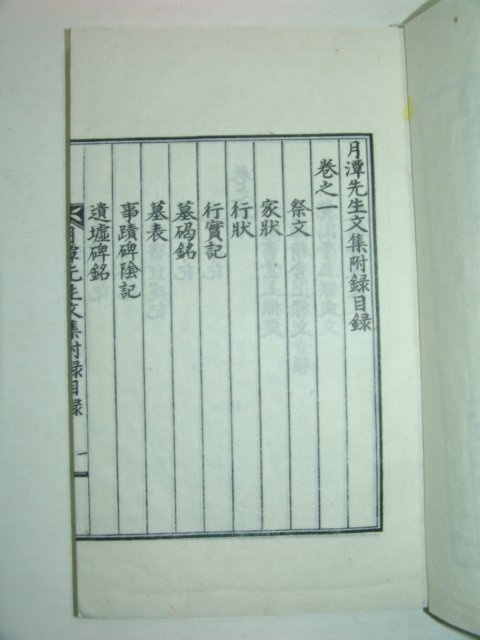 月潭先生文集附錄目錄
卷之一
祭文
家狀
行狀
行實記
墓碣銘
墓表
事蹟碑陰記
遺墟碑銘
月潭先生文集附錄目錄
一